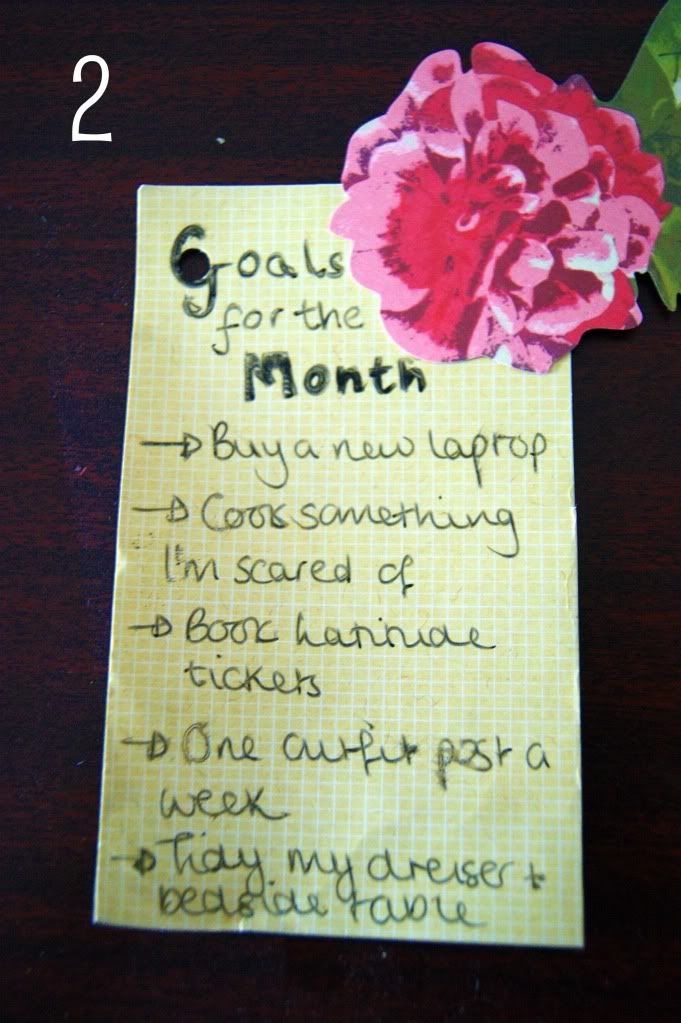 2
Goals
for the
Month
→ Buy a new laptop
→ Cook something
I'm scared of
→ Book Latitude
tickets
→ One outfit post a
week
→ Tidy my dresser +
bedside table